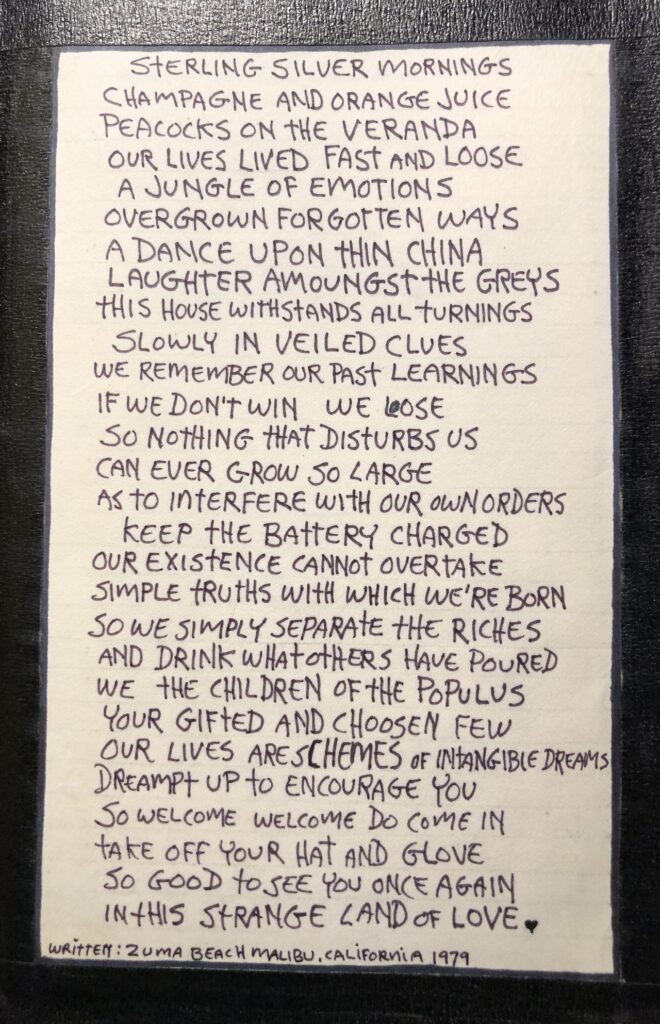 STERLING SILVER MORNINGS
CHAMPAGNE AND ORANGE JUICE
PEACOCKS ON THE VERANDA
OUR LIVES LIVED FAST AND LOOSE
A JUNGLE OF EMOTIONS
OVERGROWN FORGOTTEN WAYS
A DANCE UPON THIN CHINA
LAUGHTER AMOUNGST THE GREYS
THIS HOUSE WITHSTANDS ALL TURNINGS
SLOWLY IN VEILED CLUES
WE REMEMBER OUR PAST LEARNINGS
IF WE DON'T WIN WE LOSE
SO NOTHING THAT DISTURBS US
CAN EVER GROW SO LARGE
AS TO INTERFERE WITH OUR OWN ORDERS
KEEP THE BATTERY CHARGED
OUR EXISTENCE CANNOT OVERTAKE
SIMPLE TRUTHS WITH WHICH WE'RE BORN
SO WE SIMPLY SEPARATE THE RICHES
AND DRINK WHAT OTHERS HAVE POURED
WE THE CHILDREN OF THE POPULUS
YOUR GIFTED AND CHOOSEN FEW
OUR LIVES ARE SCHEMES OF INTANGIBLE DREAMS
DREAMPT UP TO ENCOURAGE YOU
SO WELCOME WELCOME DO COME IN
TAKE OFF YOUR HAT AND GLOVE
SO GOOD TO SEE YOU ONCE AGAIN
IN THIS STRANGE LAND OF LOVE.
WRITTEN: ZUMA BEACH MALIBU, CALIFORNIA 1979